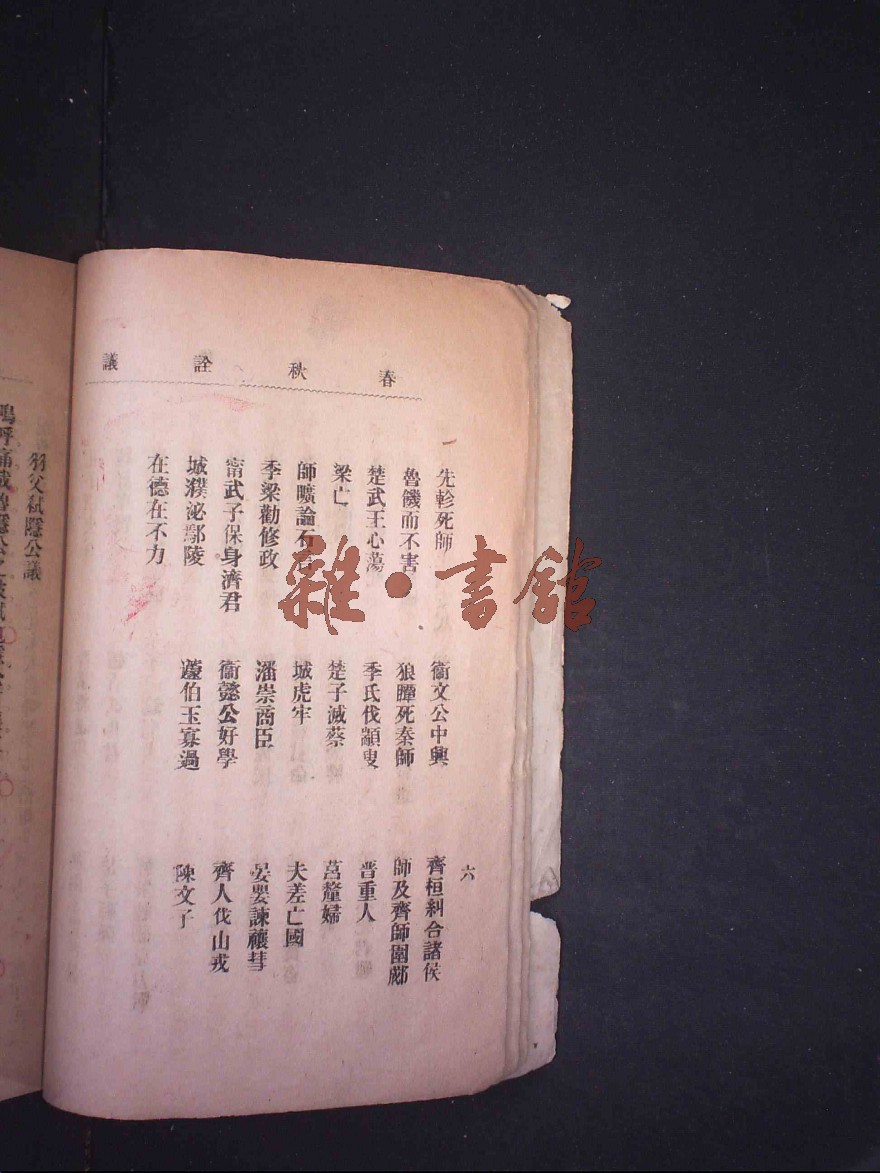 春秋詮議
六
先軫死師　衞文公中興　齊桓糾合諸侯
魯饑而不害　狼瞫死秦師　師及齊師圍郕
楚武王心蕩　季氏伐顓臾　晋重人
梁亡　楚子滅蔡　莒釐婦
師曠論石　城虎牢　夫差亡國
季梁勸修政　潘崇商臣　晏嬰諫禳彗
甯武子保身濟君　衞懿公好學　齊人伐山戎
城濮泌鄢陵　蘧伯玉寡過　陳文子
在德在不力
羽父弒隱公議
嗚呼痛哉魯隱公之被弒
雜·書館